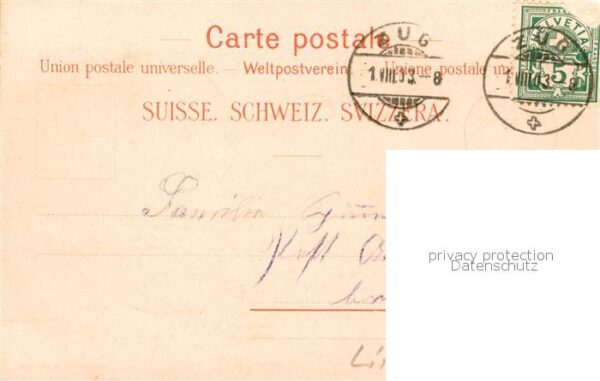 Carte postale
Union postale universelle. — Weltpostverein. — Unione postale
SUISSE. SCHWEIZ. SVIZZERA.
ZUG
1.VIII.03.–8
ZUG
1.VIII.03.–8
HELVETIA
5
Familia
privacy protection
Datenschutz